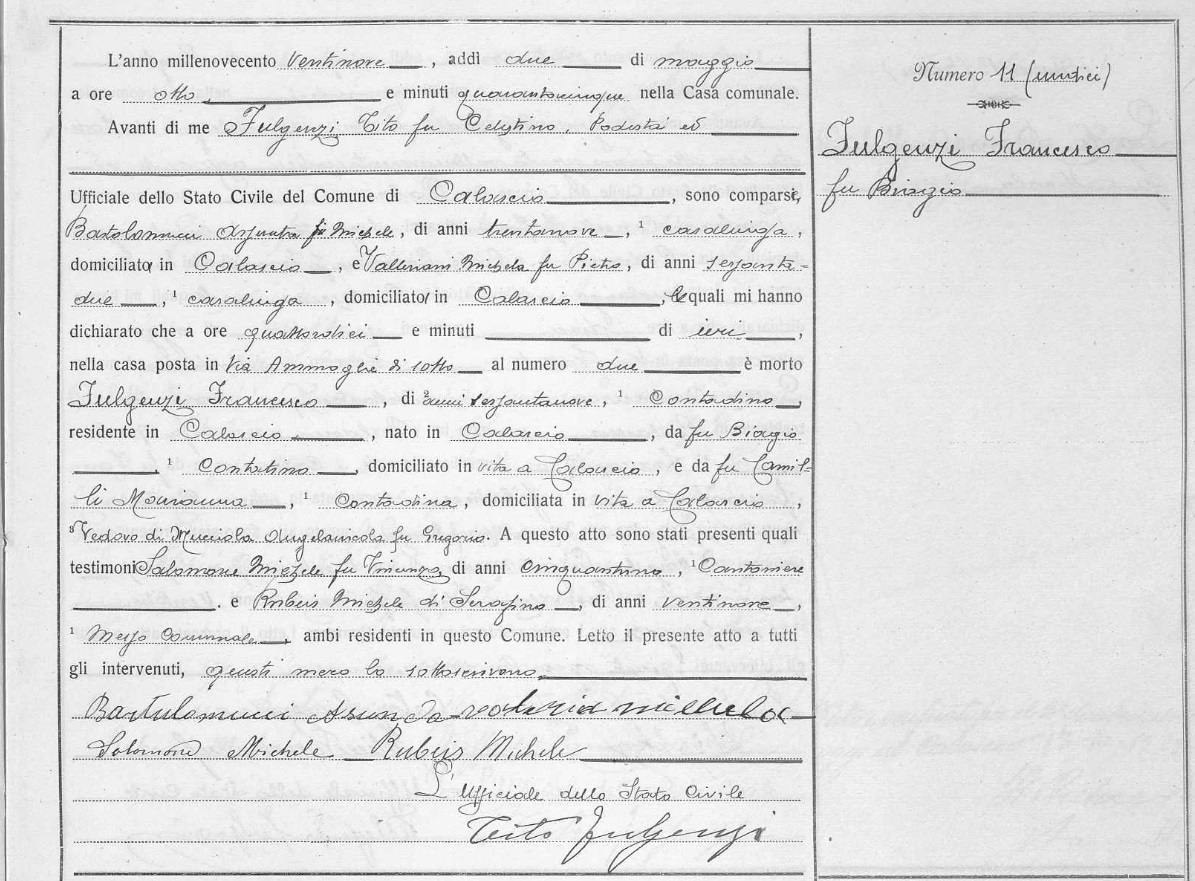 L'anno millenovecento ventinove, addì due di maggio
a ore otto e minuti quarantacinque nella Casa comunale.
Avanti di me Fulgenzi Tito fu Celestino, Podestà ed
Ufficiale dello Stato Civile del Comune di Calascio, sono comparse,
Bartolomucci Assunta fu Michele, di anni trentanove, ¹ casalinga,
domiciliata in Calascio, e Valleriani Michela fu Pietro, di anni sessanta-
due, ¹ casalinga, domiciliato in Calascio, le quali mi hanno
dichiarato che a ore quattordici e minuti di ieri,
nella casa posta in Via Ammoglie di sotto al numero due è morto
Fulgenzi Francesco, di ² anni sessantanove, ¹ Contadino,
residente in Calascio, nato in Calascio, da fu Biagio
, ¹ Contatino, domiciliato in vita a Calascio, e da fu Camil-
li Marianna, ¹ Contadina, domiciliata in vita a Calascio,
³ Vedovo di Mucciola Angelanicola fu Gregorio. A questo atto sono stati presenti quali
testimoni Salomone Michele fu Vincenzo di anni cinquantuno, ¹ Cantoniere
. e Rubeis Michele di Serafino, di anni ventinove,
¹ Messo Comunale, ambi residenti in questo Comune. Letto il presente atto a tutti
gli intervenuti, questi meco lo sottoscrivono
Bartulomucci Asunda valeria michela
Salomone Michele Rubeis Michele
L'Ufficiale dello Stato Civile
Tito Fulgenzi
Numero 11 (undici)
Fulgenzi Francesco
fu Biagio